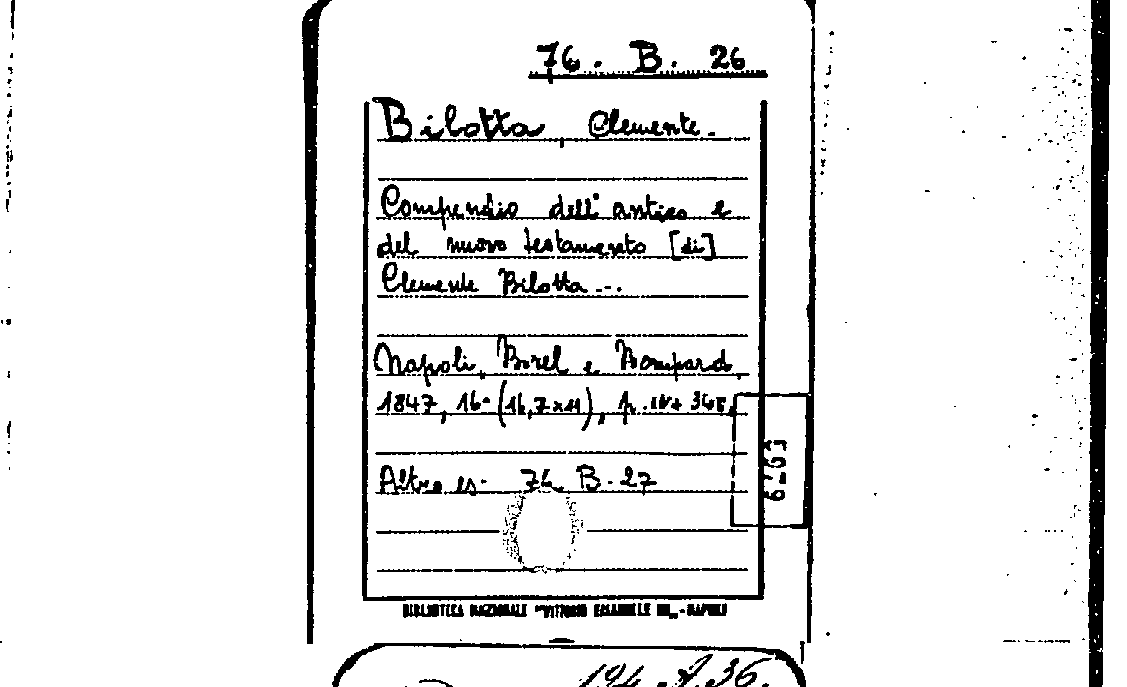 76. B. 26
Bilotta, Clemente.
Compendio dell'antico e
del nuovo testamento [di]
Clemente Bilotta...
Napoli, Borel e Bompard,
1847, 16° (16,7x11), p.
Altro es. 76 B. 27
BIBLIOTECA NAZIONALE "VITTORIO EMANUELE III" - NAPOLI
194. A. 36.